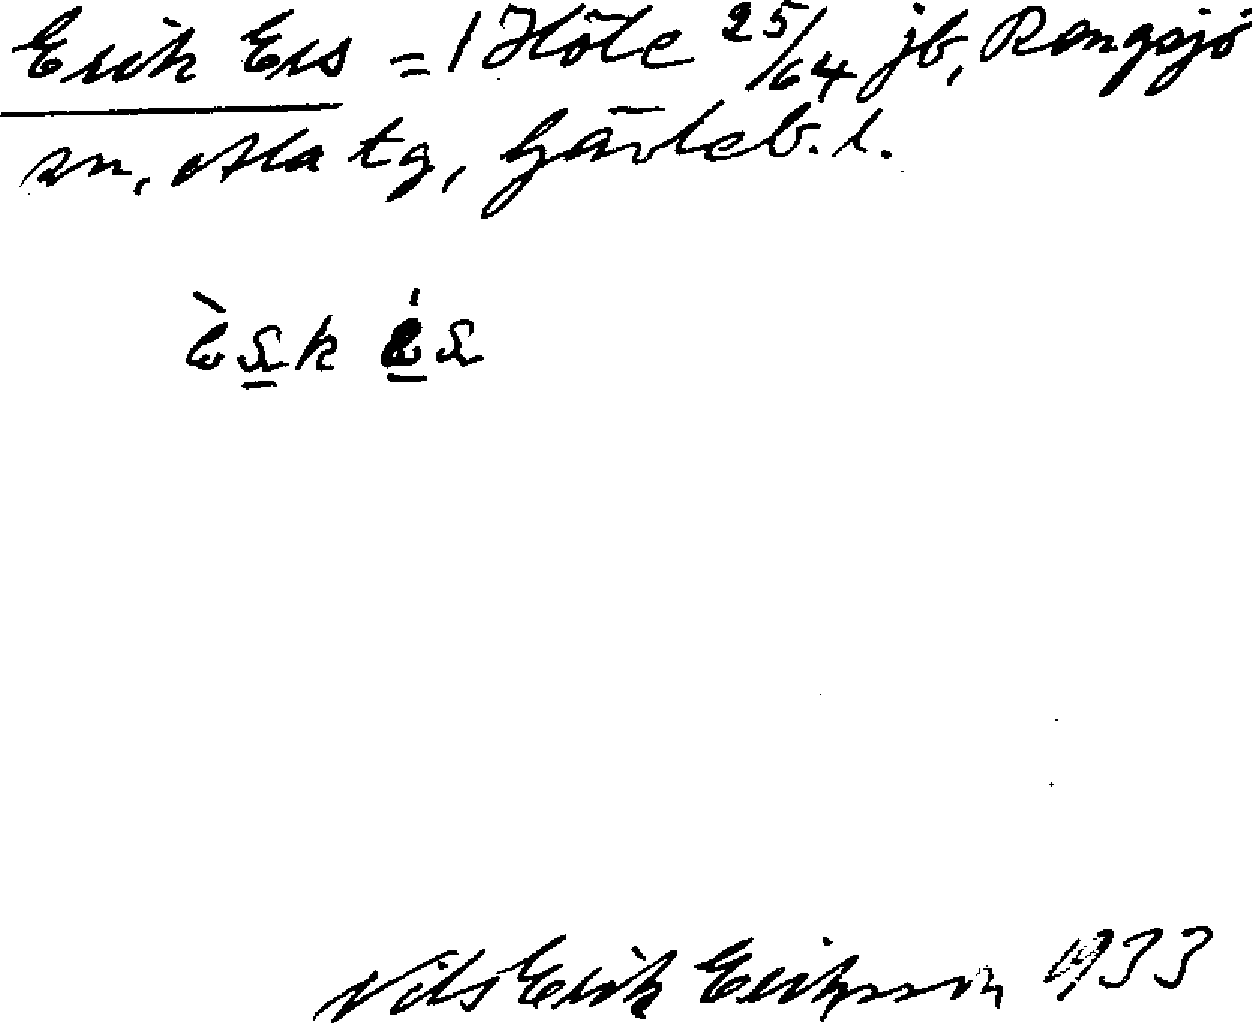 Erik Ers = 1 Höle 25/64 jb, Rengsjö
sn, Ala tg, Gävleb. l.
Nils Erik Eriksson 1933